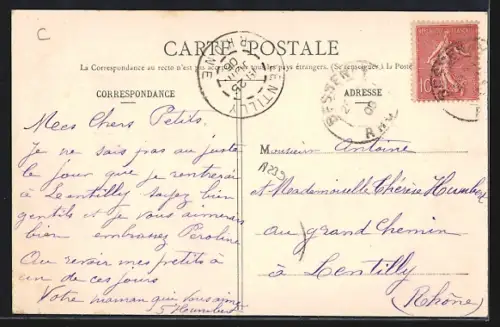 C
CARTE POSTALE
La Correspondance au recto n'est pas pays étrangers. (Se renseigner à la Poste
CORRESPONDANCE
ADRESSE
LENTILLY
RHONE
25
BESSE
RH
10
Mes Chers Petits.
Je ne sais pas au juste
le jour que je rentrerai
à Lentilly soyez bien
gentils et je vous aimerai
bien embrassez Peroline
Au revoir mes petits à
un de ces jours
Votre maman qui vous aime
Humbert
Monsieur Antoine
et Mademoiselle Thérèse Humbert
au grand Chemin
à Lentilly
(Rhône)